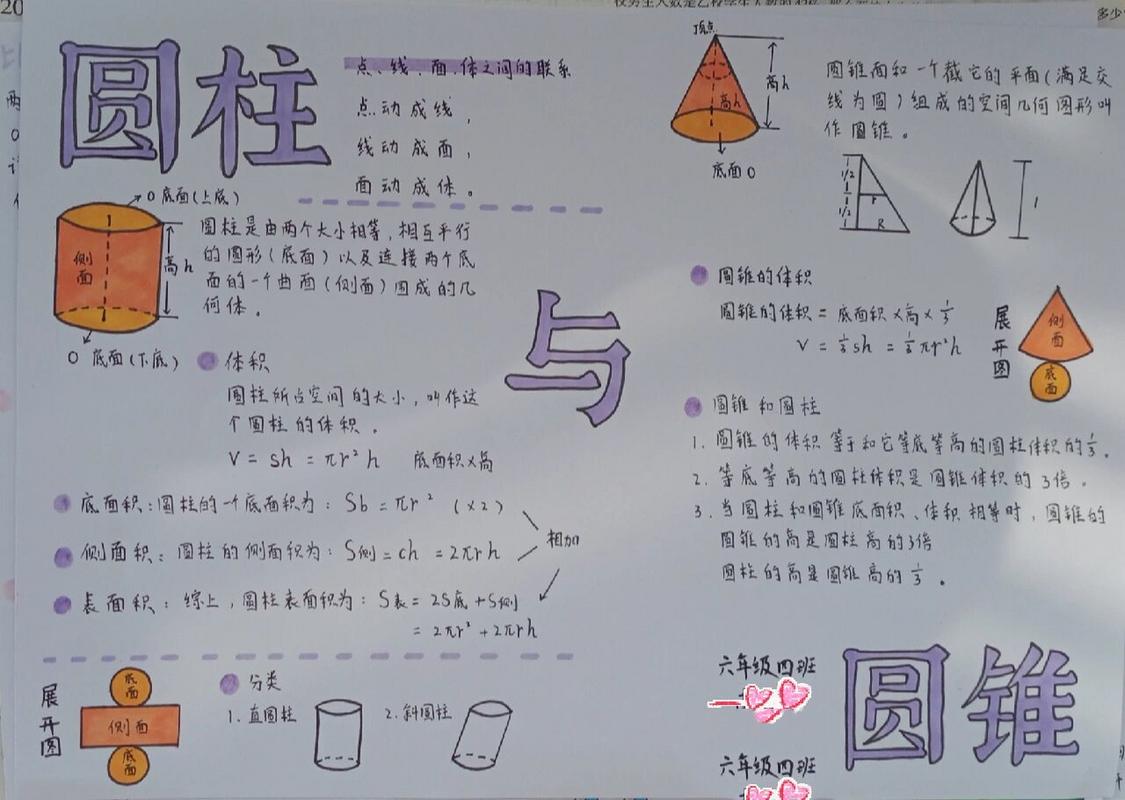 圆柱
点、线、面、体之间的联系
点动成线，
线动成面，
面动成体。
O 底面(上底)
侧面
高h
O 底面(下底)
圆柱是由两个大小相等，相互平行
的圆形(底面)以及连接两个底
面的一个曲面(侧面)围成的几
何体。
体积
圆柱所占空间的大小，叫作这
个圆柱的体积．
V = sh = πr²h 底面积×高
底面积：圆柱的一个底面积为：Sb = πr² (×2)
侧面积：圆柱的侧面积为：S侧 = ch = 2πrh
相加
表面积：综上，圆柱表面积为：S表 = 2S底 + S侧
= 2πr² + 2πrh
展开图
底面
侧面
底面
分类
1. 直圆柱
2. 斜圆柱
与
顶点
高h
高h
底面 O
圆锥面和一个截它的平面(满足交
线为圆)组成的空间几何图形叫
作圆锥。
1/2
1/2
r
R
圆锥的体积
圆锥的体积 = 底面积×高×1/3
V = 1/3sh = 1/3πr²h
展开图
侧面
底面
圆锥和圆柱
1. 圆锥的体积等于和它等底等高的圆柱体积的1/3。
2. 等底等高的圆柱体积是圆锥体积的3倍。
3. 当圆柱和圆锥底面积、体积相等时，圆锥的
圆锥的高是圆柱高的3倍
圆柱的高是圆锥高的1/3。
六年级四班
六年级四班
圆锥